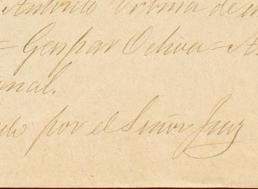 Antonio Urbina de
= Gaspar Ochoa = A
nal.
do por el Señor Juez